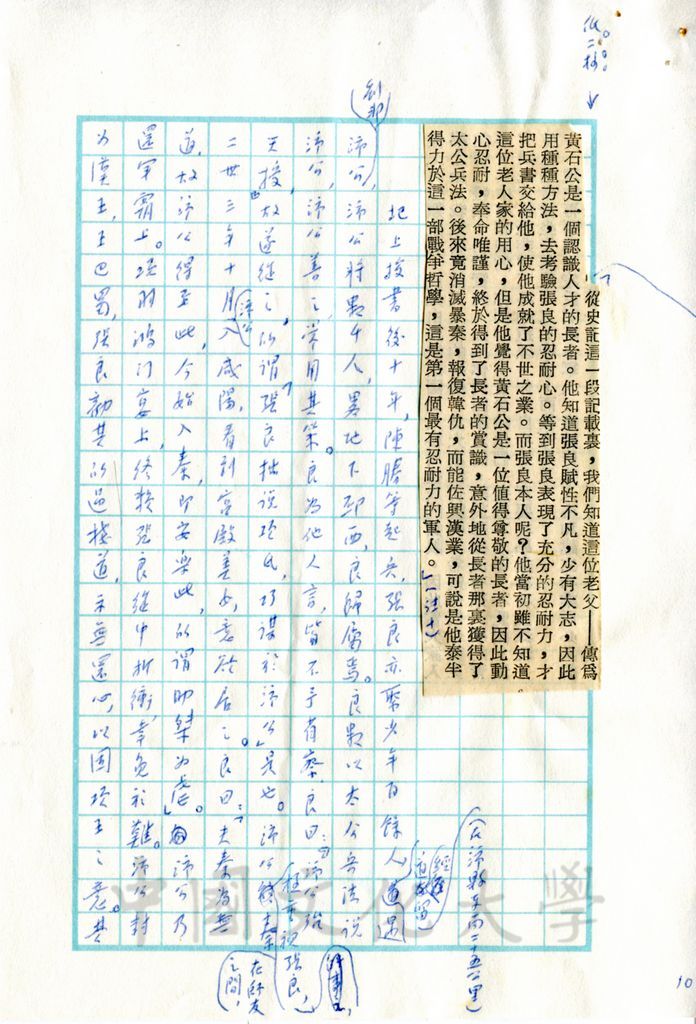 低二格
「從史記這一段記載裏，我們知道這位老父——傳爲
黃石公是一個認識人才的長者。他知道張良賦性不凡，少有大志，因此
用種種方法，去考驗張良的忍耐心。等到張良表現了充分的忍耐力，才
把兵書交給他，使他成就了不世之業。而張良本人呢？他當初雖不知道
這位老人家的用心，但是他覺得黃石公是一位値得尊敬的長者，因此動
心忍耐，奉命唯謹，終於得到了長者的賞識，意外地從長者那裏獲得了
太公兵法。後來竟消滅暴秦，報復韓仇，而能佐興漢業，可說是他泰半
得力於這一部戰爭哲學，這是第一個最有忍耐力的軍人。」（註十）
圯上授書後十年，陳勝等起兵，張良亦聚少年百餘人，道遇
（在沛縣東南二十五公里）
經過
（劉邦）
沛公，沛公將數千人，畧地下邳西，良歸屬焉。良數以太公兵法說
沛公，沛公善之，常用其策。良爲他人言，皆不予省察，良曰：「沛公殆
天授」，故遂從之，所謂「張良拙說於氏，巧謀於沛公」是也。沛公
極重視張良，
在師友之間，
二世三年十月，沛公入咸陽，看到宮殿美女，意欲居之。良曰：「夫秦爲無
道，故沛公得至此，今始入秦，卽安樂此，所謂助桀爲虐」。沛公乃
還軍霸上。項羽鴻門宴上，終賴張良從中折衝，幸免於難。沛公封
为漢王，王巴蜀，張良勸其的過棧道，示無還心，以固項王之意。其
中國文化大學
10